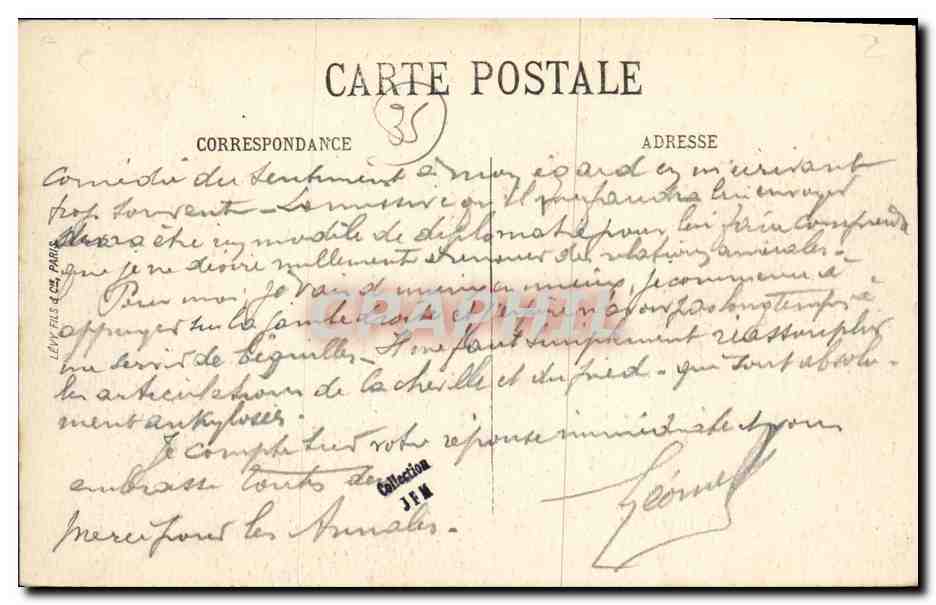 CARTE POSTALE
35
CORRESPONDANCE
ADRESSE
comédie du sentiment à mon égard en m'écrivant
trop souvent - La missive qu'il me faudra lui envoyer
devra être un modèle de diplomatie pour lui faire comprendre
que je ne désire nullement renouer des relations amicales -
Pour moi, je vais de mieux en mieux, je commence à
appuyer sur la jambe droite et j'espère n'avoir pas longtemps à
me servir de béquilles - Il me faut simplement réassouplir
les articulations de la cheville et du pied - qui sont absolu-
ment ankyloses.
Je compte sur votre réponse immédiate et vous
embrasse toutes
Merci pour les Annales -
LÉVY FILS & Cie, PARIS
Collection
JFM
CPAPHIL